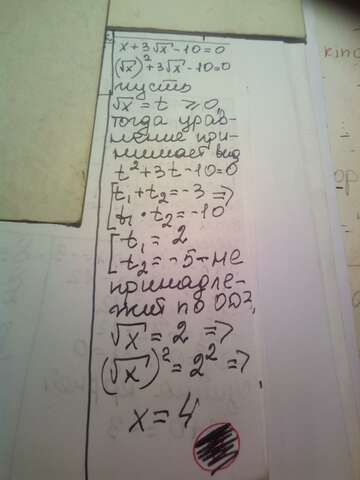 x+3√x-10=0
(√x)²+3√x-10=0
пусть
√x=t ≥0
тогда урав-
нение при-
нимает вид
t²+3t-10=0
[t₁+t₂=-3 =>
t₁·t₂=-10
[t₁=2
t₂=-5-не
принадле-
жит по ОДЗ,
√x=2 =>
(√x)²=2² =>
x=4